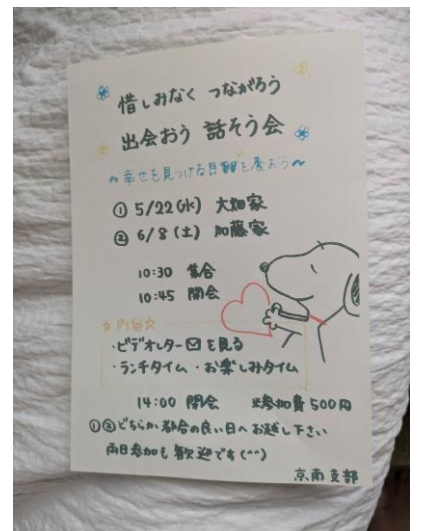 惜しみなく つながろう
出会おう 話そう会
～幸せを見つける目を養おう～
① 5/22(水) 大畑家
② 6/8(土) 加藤家
10:30 集合
10:45 開会
☆内容☆
・ビデオレター✉を見る
・ランチタイム ・お楽しみタイム
14:00 閉会 ※参加費 500円
①②どちらか都合の良い日へお越し下さい
両日参加も歓迎です(^^)
京南支部